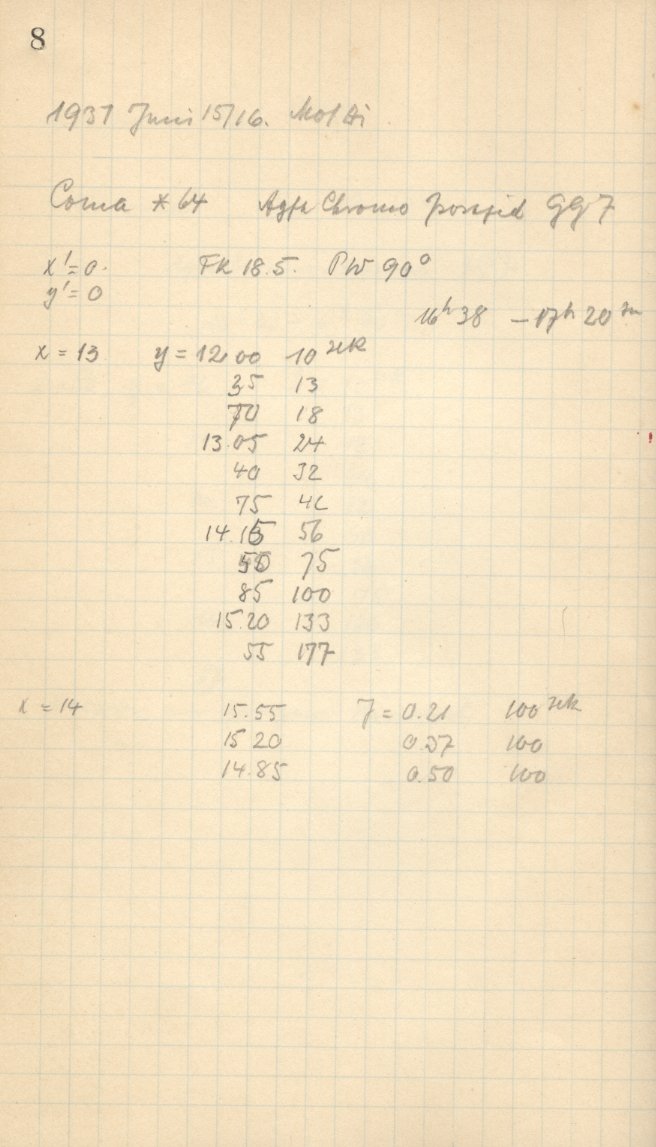 8
1937 Juni 15/16.
Coma * 64 Agfa Chromo Isorapid GG7
x' = 0. FK 18.5. PW 90°
y' = 0
16h 38 – 17h 20m
x = 13 y = 12.00 10 sek
35 13
70 18
13.05 24
40 32
75 42
14.15 56
50 75
85 100
15.20 133
55 177
x = 14 15.55 J = 0.21 100 sek
15 20 0.37 100
14.85 0.50 100